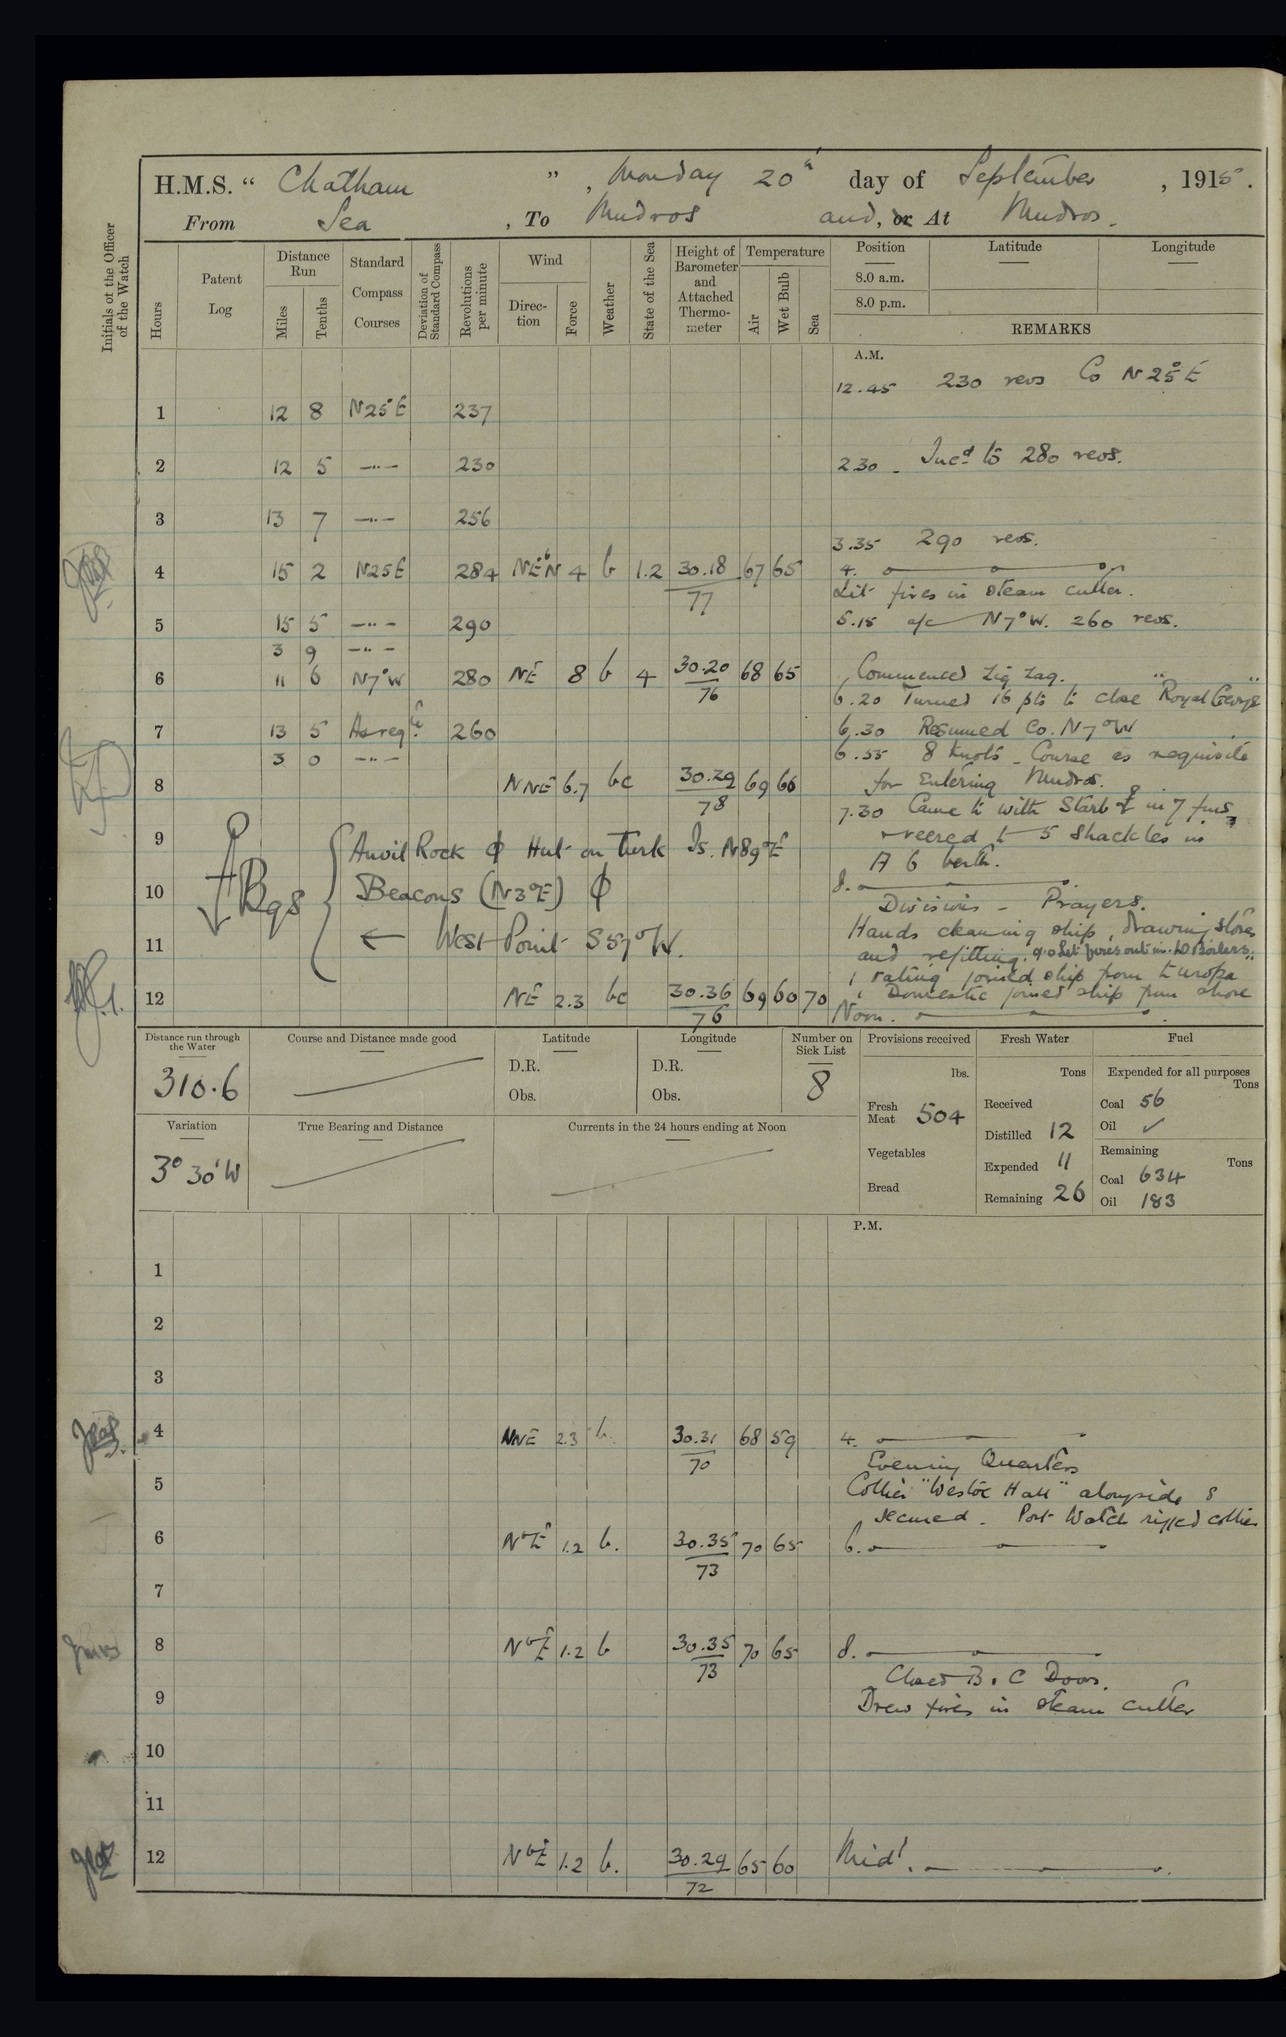 H.M.S. “ Chatham ” , Monday 20th day of September , 1915 .
From Sea , To Mudros and, or At Mudros.
Initials of the Officer of the Watch
Hours
Patent Log
Distance Run
Miles
Tenths
Standard Compass Courses
Deviation of Standard Compass
Revolutions per minute
Wind
Direction
Force
Weather
State of the Sea
Height of Barometer and Attached Thermometer
Temperature
Air
Wet Bulb
Sea
Position Latitude Longitude
8.0 a.m.
8.0 p.m.
REMARKS
A.M.
12.45 230 revs Co N25°E
1 12 8 N25°E 237
2 12 5 —"— 230 2.30 - Incd to 280 revs.
3 13 7 —"— 256
3.35 290 revs.
4 15 2 N25E 284 NEbN 4 b 1.2 30.18 67 65 4.
77
Lit fires in steam cutter.
5 15 5 —"— 290 5.15 a/c N7°W. 260 revs.
3 9 —"—
6 11 6 N7°W 280 NE 8 b 4 30.20 68 65 Commenced zig zag.
76
6.20 Turned 16 pts to close "Royal George"
7 13 5 As req. 260 6.30 Resumed Co. N7°W
3 0 —"— 6.55 8 Knots - Course as requisite
8 NNE 6.7 bc 30.29 69 66 for Entering Mudros.
78
7.30 Came to with Starbd in 7 fms
9 veered to 5 shackles in
A 6 berth.
Bgs
Anvil Rock ϕ Hut on Turk Is. N89°E
10 Beacons (N3°E) ϕ
← West Point S57°W.
8.
Divisions - Prayers.
11 Hands cleaning ship, drawing stores
and refitting. 9.0 Let fires out in 10 Boilers.
1 rating joined ship from Europa
12 NE 2.3 bc 30.36 69 60 70 1 Domestic joined ship from shore
76
Noon.
Distance run through the Water
310.6
Course and Distance made good
Latitude
D.R.
Obs.
Longitude
D.R.
Obs.
Number on Sick List
8
Provisions received
lbs.
Fresh Meat 504
Vegetables
Bread
Fresh Water
Tons
Received
Distilled 12
Expended 11
Remaining 26
Fuel
Expended for all purposes
Tons
Coal 56
Oil ✓
Remaining
Tons
Coal 634
Oil 183
Variation
3° 30' W
True Bearing and Distance
Currents in the 24 hours ending at Noon
P.M.
1
2
3
4 NNE 2.3 b. 30.31 68 59 4.
70
Evening Quarters
5 Collier "Westoe Hall" alongside &
secured. Port Watch rigged collier
6 NbE 1.2 b. 30.35 70 65 6.
73
7
8 NbE 1.2 b 30.35 70 65 8.
73
Closed B. & C Doors.
9 Drew fires in steam cutter
10
11
12 NbE 1.2 b. 30.29 65 60 Midt.
72